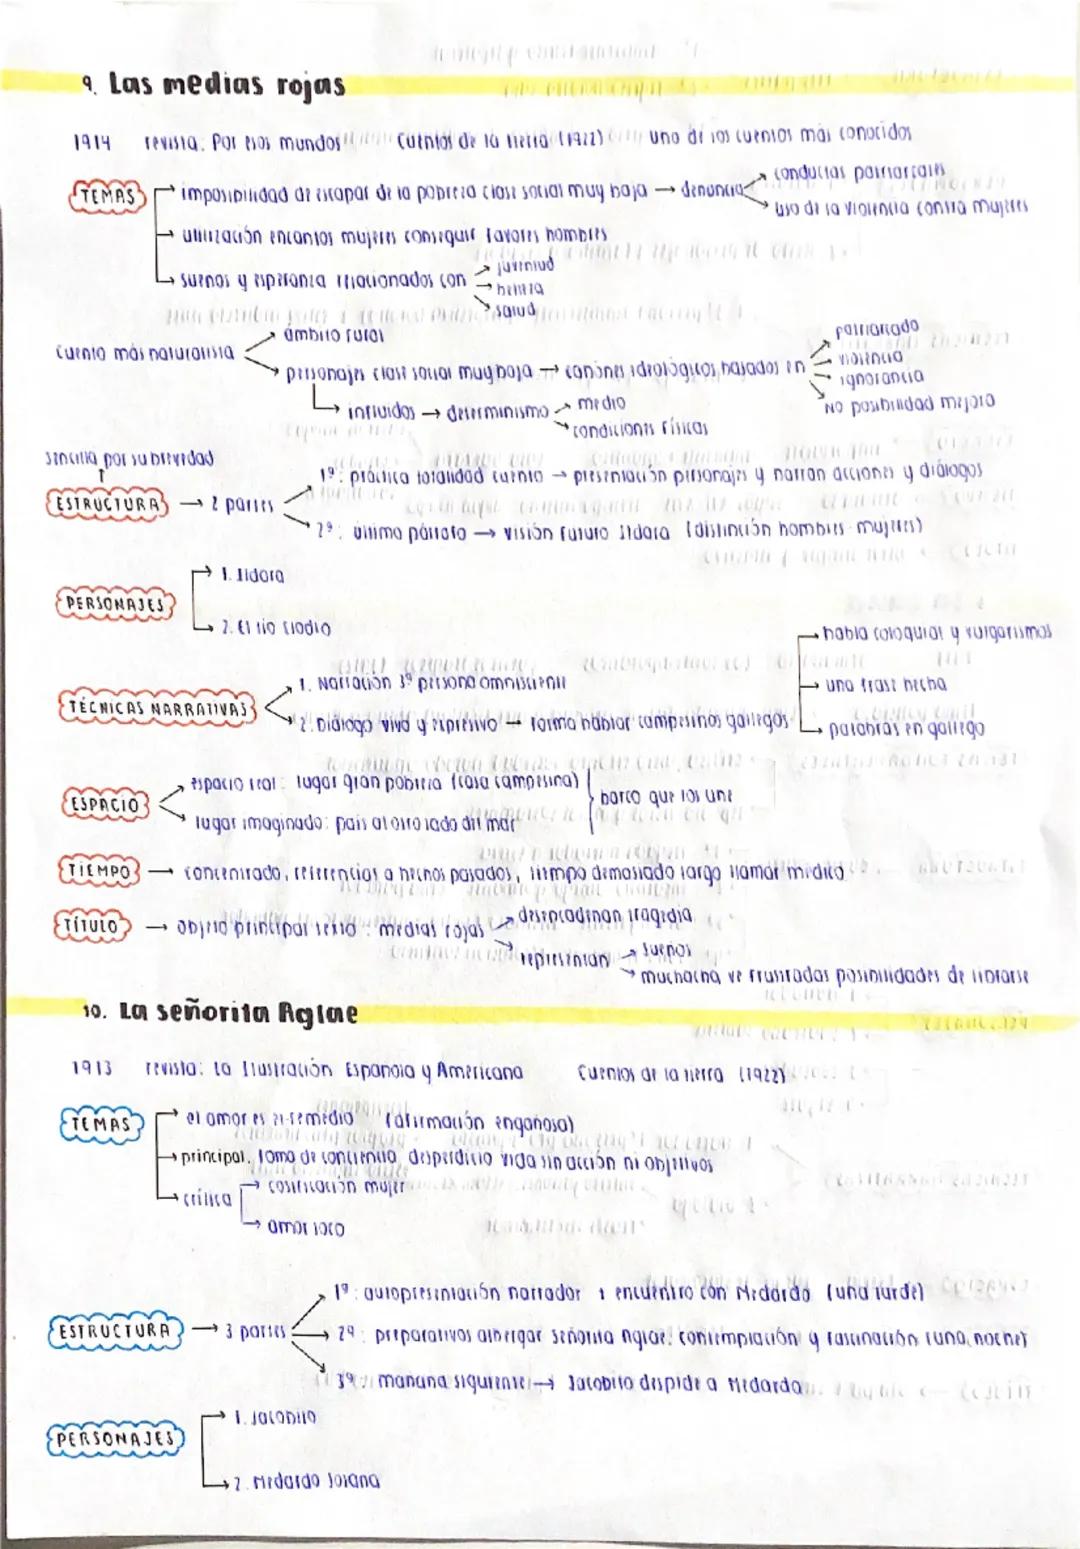 9. Las medias rojas
1914 revista: Por esos mundos Cuentos de la tierra (1922) uno de los cuentos más conocidos
TEMAS → imposibilidad de escapar de la pobreza clase social muy baja → denuncia → conductas patriarcales
→ uso de la violencia contra mujeres
→ utilización encantos mujeres conseguir favores hombres
→ sueños y esperanza relacionados con → juventud
→ belleza
→ salud
Cuento más naturalista → ámbito rural
→ personajes clase social muy baja → cánones ideológicos basados en → patriarcado
→ violencia
→ ignorancia
→ No posibilidad mejora
→ influidos → determinismo → medio
→ condiciones físicas
sencilla por su brevedad
ESTRUCTURA → 2 partes → 1º: práctica totalidad cuento → presentación personajes y narran acciones y diálogos
→ 2º: último párrafo → visión futuro Ildara (distinción hombres-mujeres)
PERSONAJES → 1. Ildara
→ 2. El tío Clodio
TÉCNICAS NARRATIVAS → 1. Narración 3º persona omnisciente
→ 2. Diálogo vivo y expresivo → forma hablar campesinos gallegos → habla coloquial y vulgarismos
→ una frase hecha
→ palabras en gallego
ESPACIO → espacio real: lugar gran pobreza (casa campesina)
→ lugar imaginado: país al otro lado del mar } barco que los une
TIEMPO → concentrado, referencias a hechos pasados, tiempo demasiado largo llamar médico
TÍTULO → objeto principal texto: medias rojas → desencadenan tragedia
→ representan → sueños
→ muchacha ve frustradas posibilidades de librarse
10. La señorita Aglae
1913 revista: La Ilustración Española y Americana Cuentos de la tierra (1922)
TEMAS → el amor es el remedio (afirmación engañosa)
→ principal. toma de conciencia desperdicio vida sin acción ni objetivos
→ crítica → cosificación mujer
→ amor loco
ESTRUCTURA → 3 partes → 1º: autopresentación narrador + encuentro con Medardo (una tarde)
→ 2º: preparativos albergar señorita Aglae: contemplación y fascinación (una noche)
→ 3º: mañana siguiente → Jacobito despide a Medardo
PERSONAJES → 1. Jacobito
→ 2. Medardo Solana